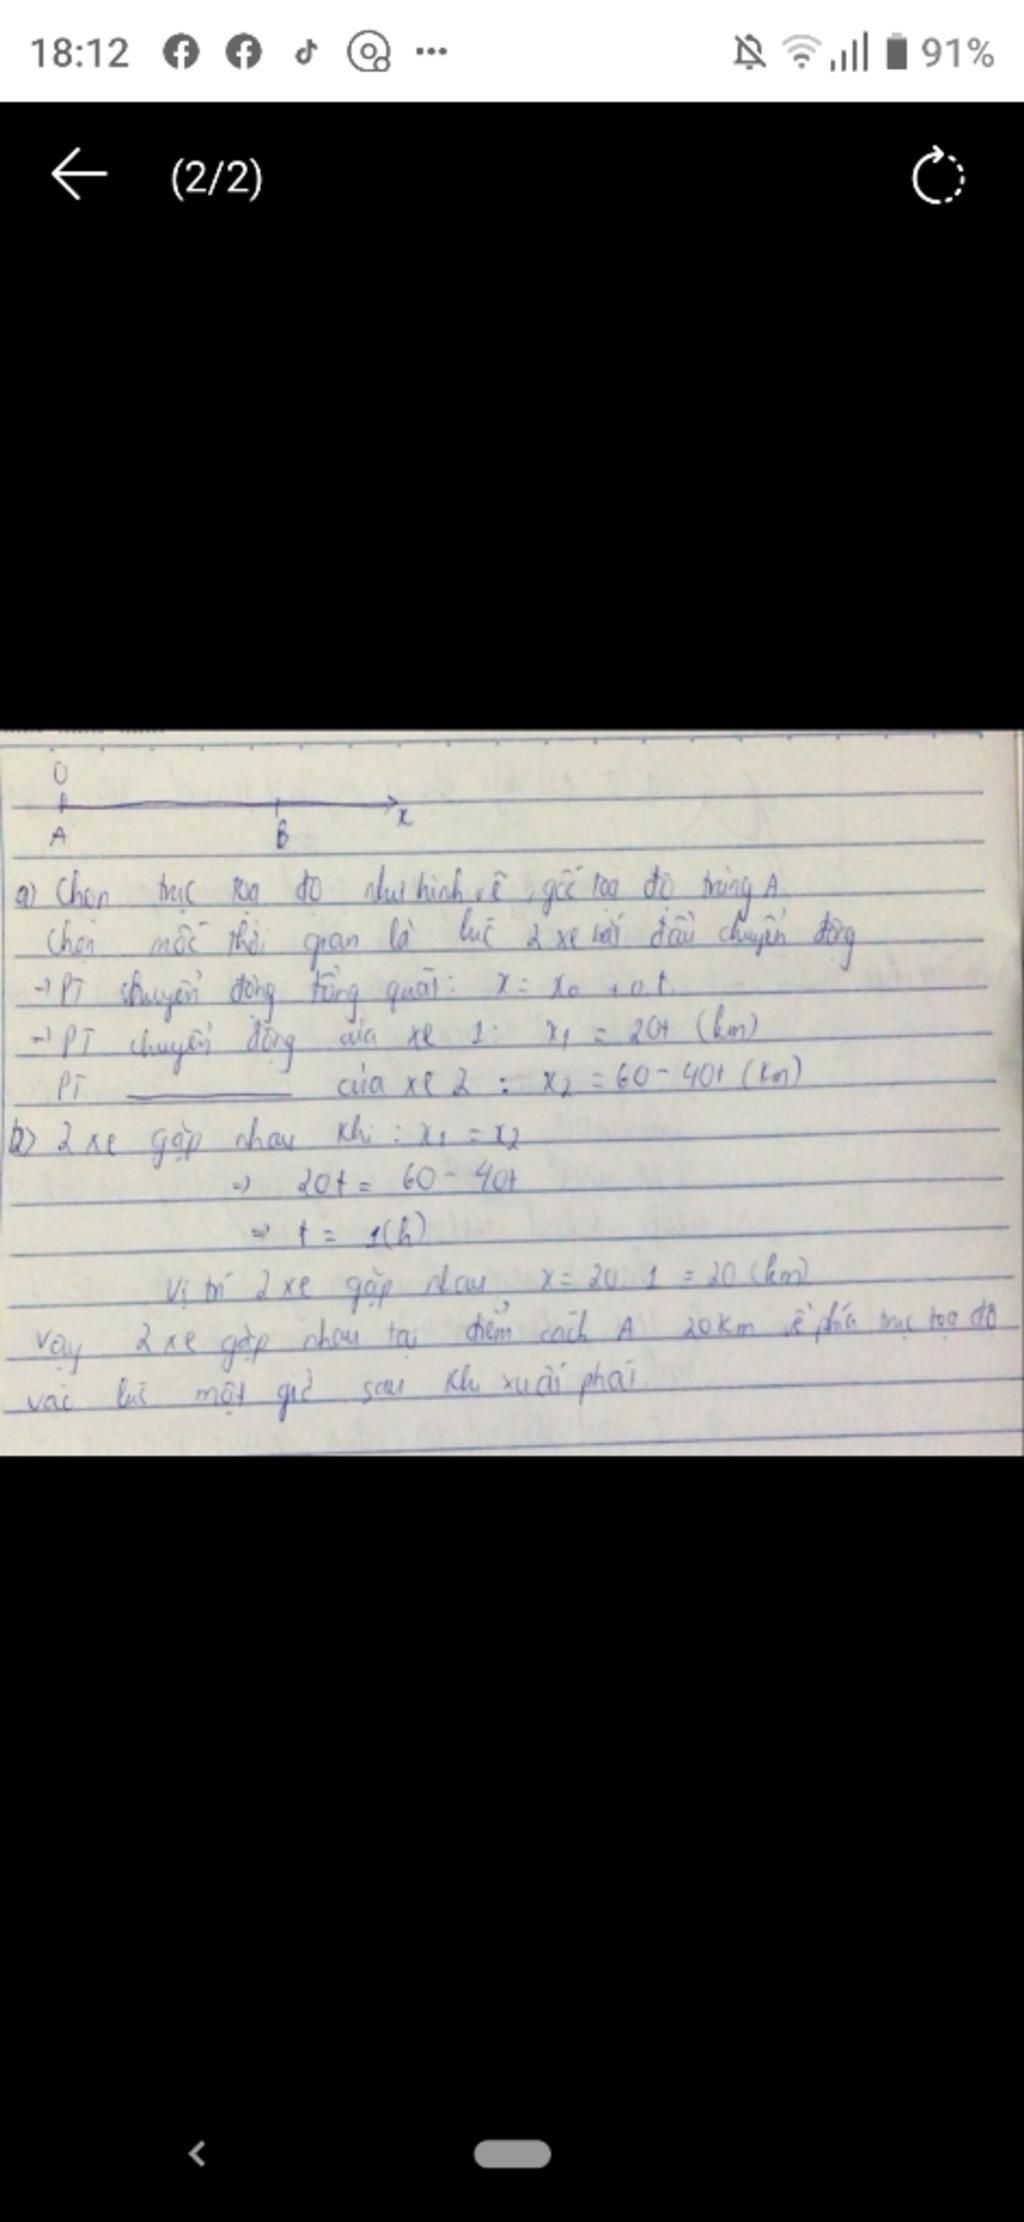 18:12 91%
(2/2)
O
A B x
a) Chọn trục toạ độ như hình vẽ, gốc toạ độ trùng A
Chọn mốc thời gian là lúc 2 xe bắt đầu chuyển động
→ PT chuyển động tổng quát: x = x₀ + vt
→ PT chuyển động của xe 1: x₁ = 20t (km)
PT ______ của xe 2: x₂ = 60 - 40t (km)
b) 2 xe gặp nhau khi: x₁ = x₂
⇒ 20t = 60 - 40t
⇒ t = 1(h)
Vị trí 2 xe gặp nhau x = 20.1 = 20 (km)
Vậy 2 xe gặp nhau tại điểm cách A 20km về phía trục toạ độ
vào lúc một giờ sau khi xuất phát.